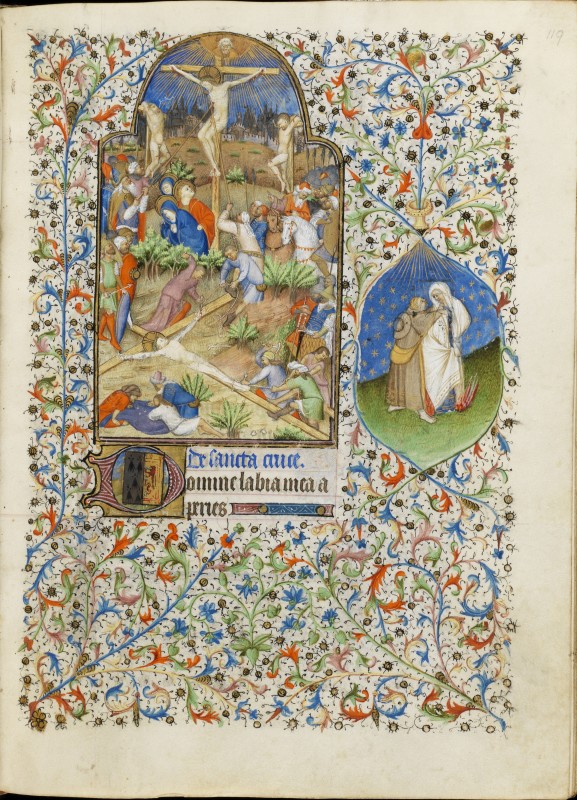 119
De sancta cruce.
Domine labia mea a
peries